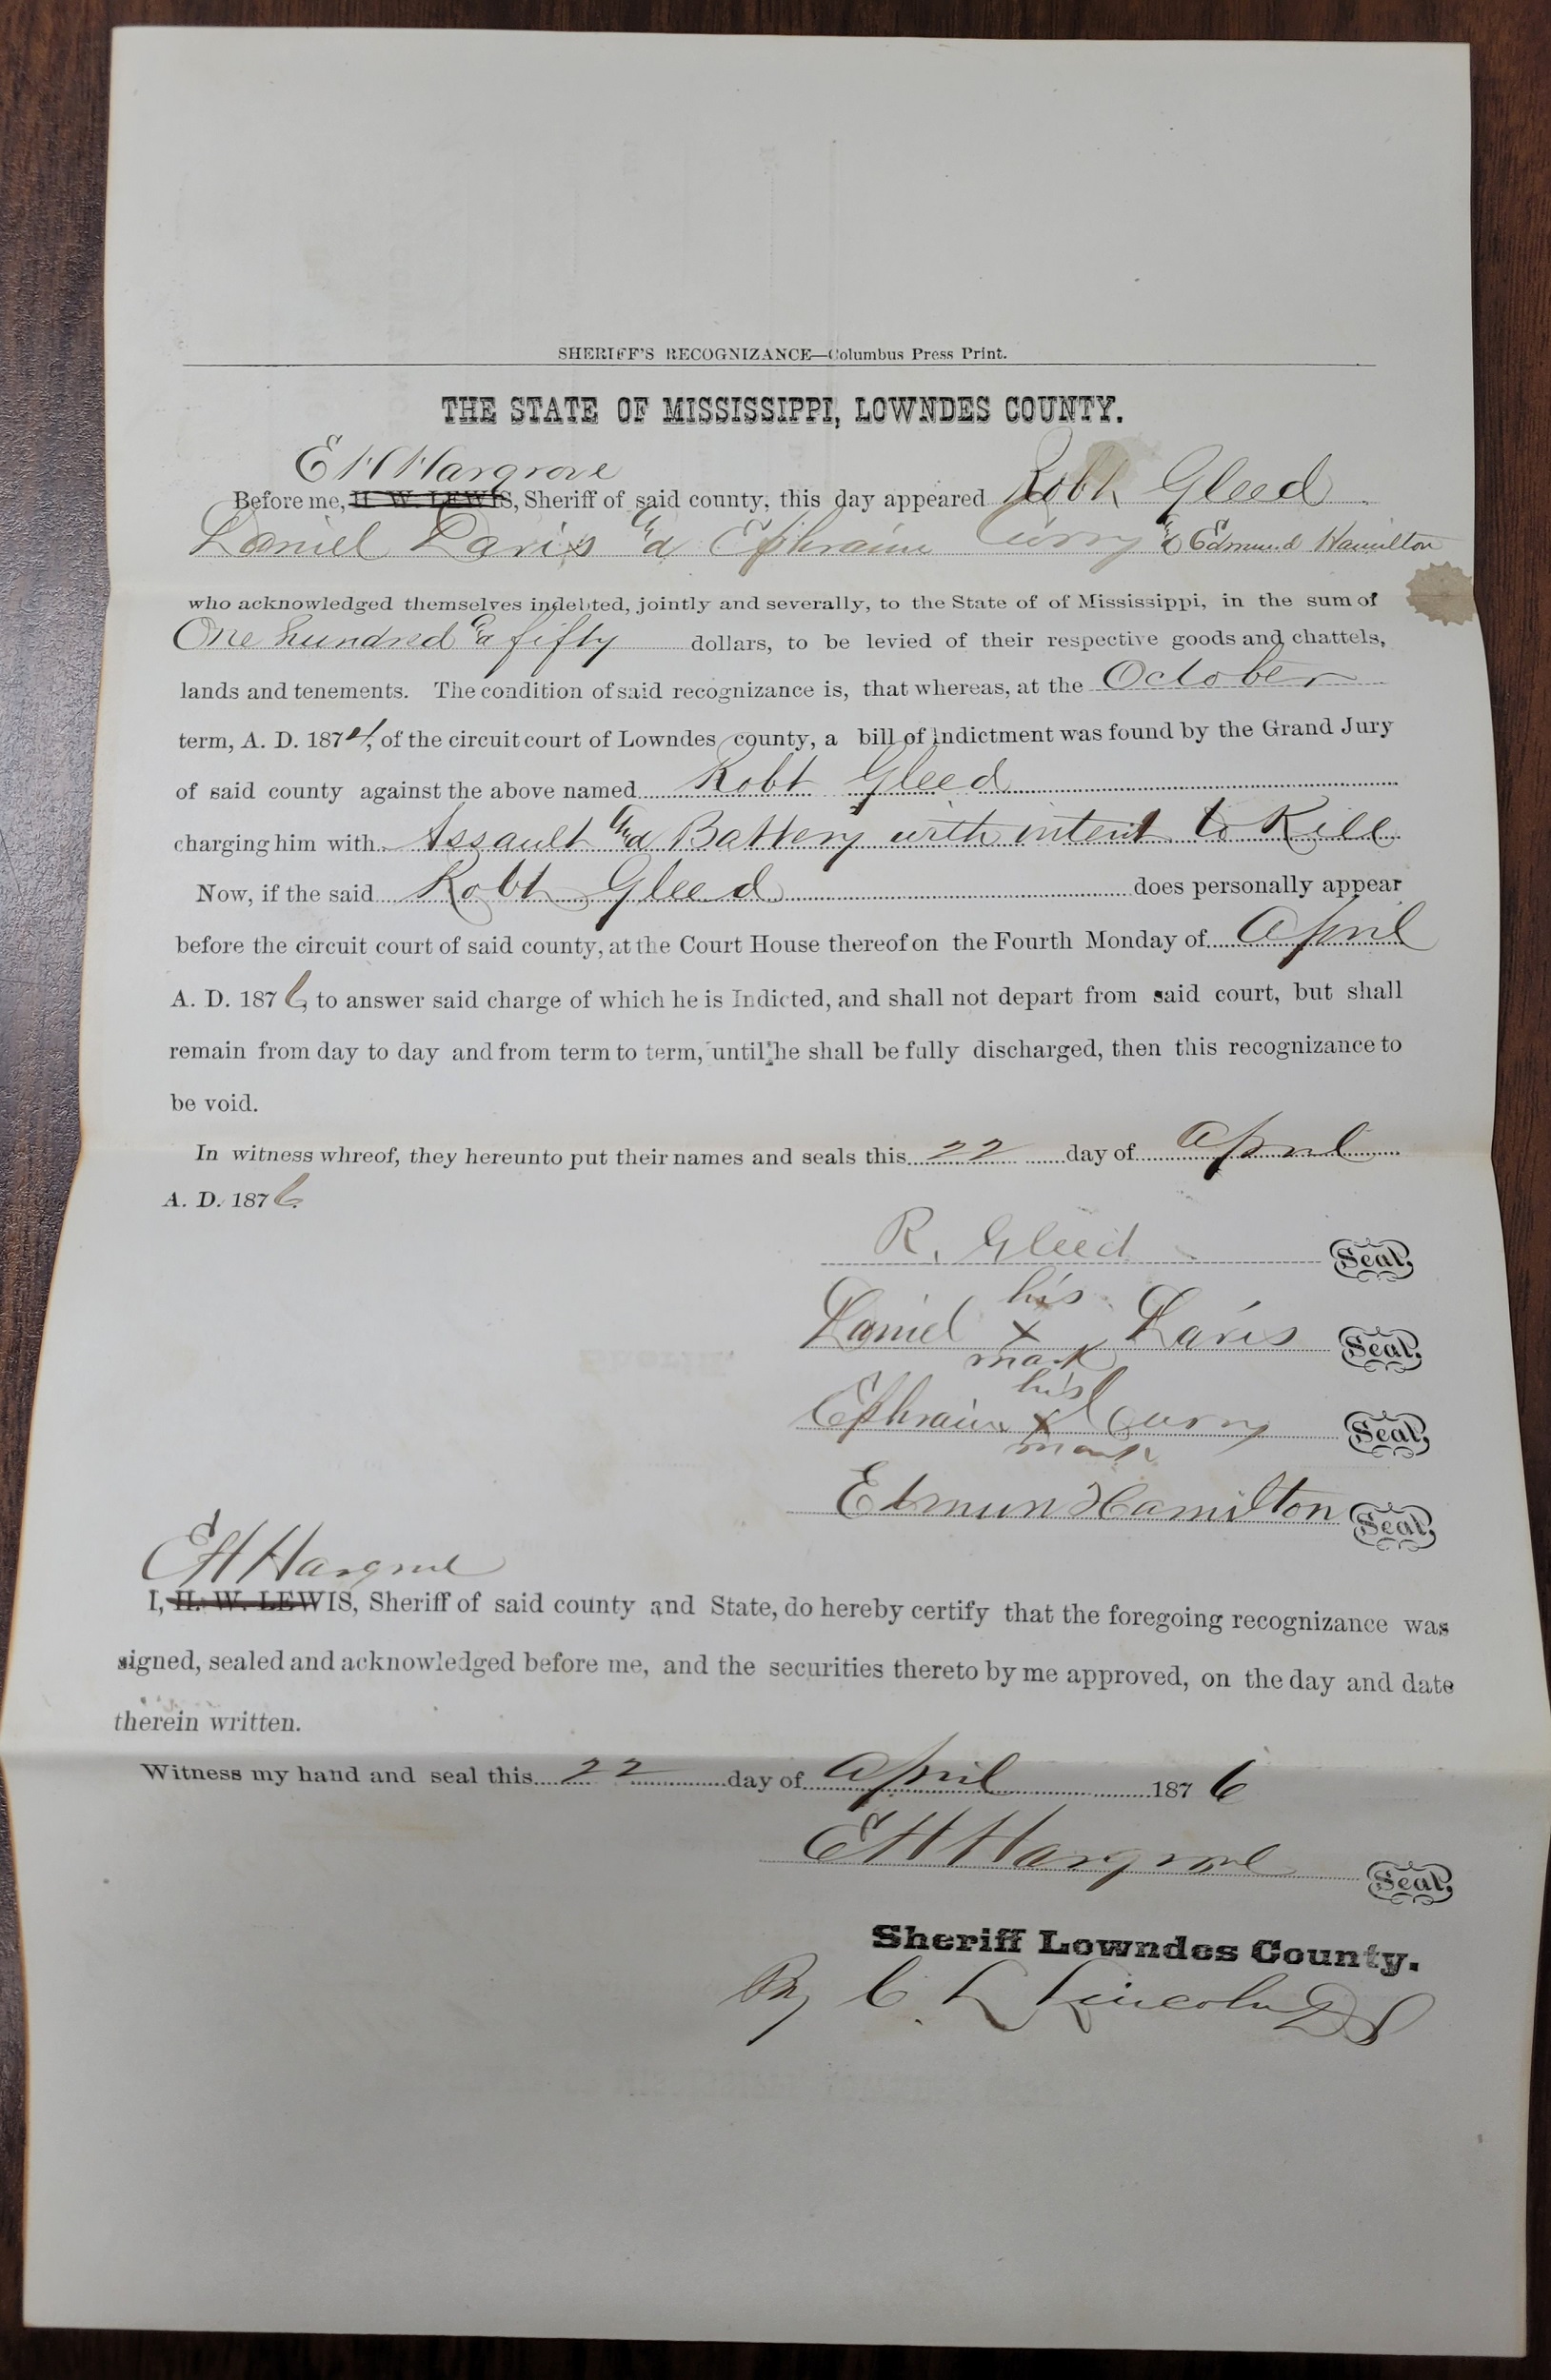 SHERIFF'S RECOGNIZANCE—Columbus Press Print.
THE STATE OF MISSISSIPPI, LOWNDES COUNTY.
E H Hargrove
Before me, H. W. LEWIS, Sheriff of said county, this day appeared Robt Gleed
Daniel Davis and Ephraim Curry & Edmund Hamilton
who acknowledged themselves indebted, jointly and severally, to the State of of Mississippi, in the sum of
One hundred & fifty dollars, to be levied of their respective goods and chattels,
lands and tenements. The condition of said recognizance is, that whereas, at the October
term, A. D. 1874, of the circuit court of Lowndes county, a bill of indictment was found by the Grand Jury
of said county against the above named Robt Gleed
charging him with Assault and Battery with intent to Kill
Now, if the said Robt Gleed does personally appear
before the circuit court of said county, at the Court House thereof on the Fourth Monday of April
A. D. 1876, to answer said charge of which he is Indicted, and shall not depart from said court, but shall
remain from day to day and from term to term, until he shall be fully discharged, then this recognizance to
be void.
In witness whreof, they hereunto put their names and seals this 22 day of April
A. D. 1876
R. Gleed Seal,
his
Daniel X Davis Seal,
mark
his
Ephraim X Curry Seal,
mark
Edmun Hamilton Seal,
E H Hargrove
I, H. W. LEWIS, Sheriff of said county and State, do hereby certify that the foregoing recognizance was
signed, sealed and acknowledged before me, and the securities thereto by me approved, on the day and date
therein written.
Witness my hand and seal this 22 day of April 1876
E H Hargrove Seal,
Sheriff Lowndes County.
By C. L Lincoln DS